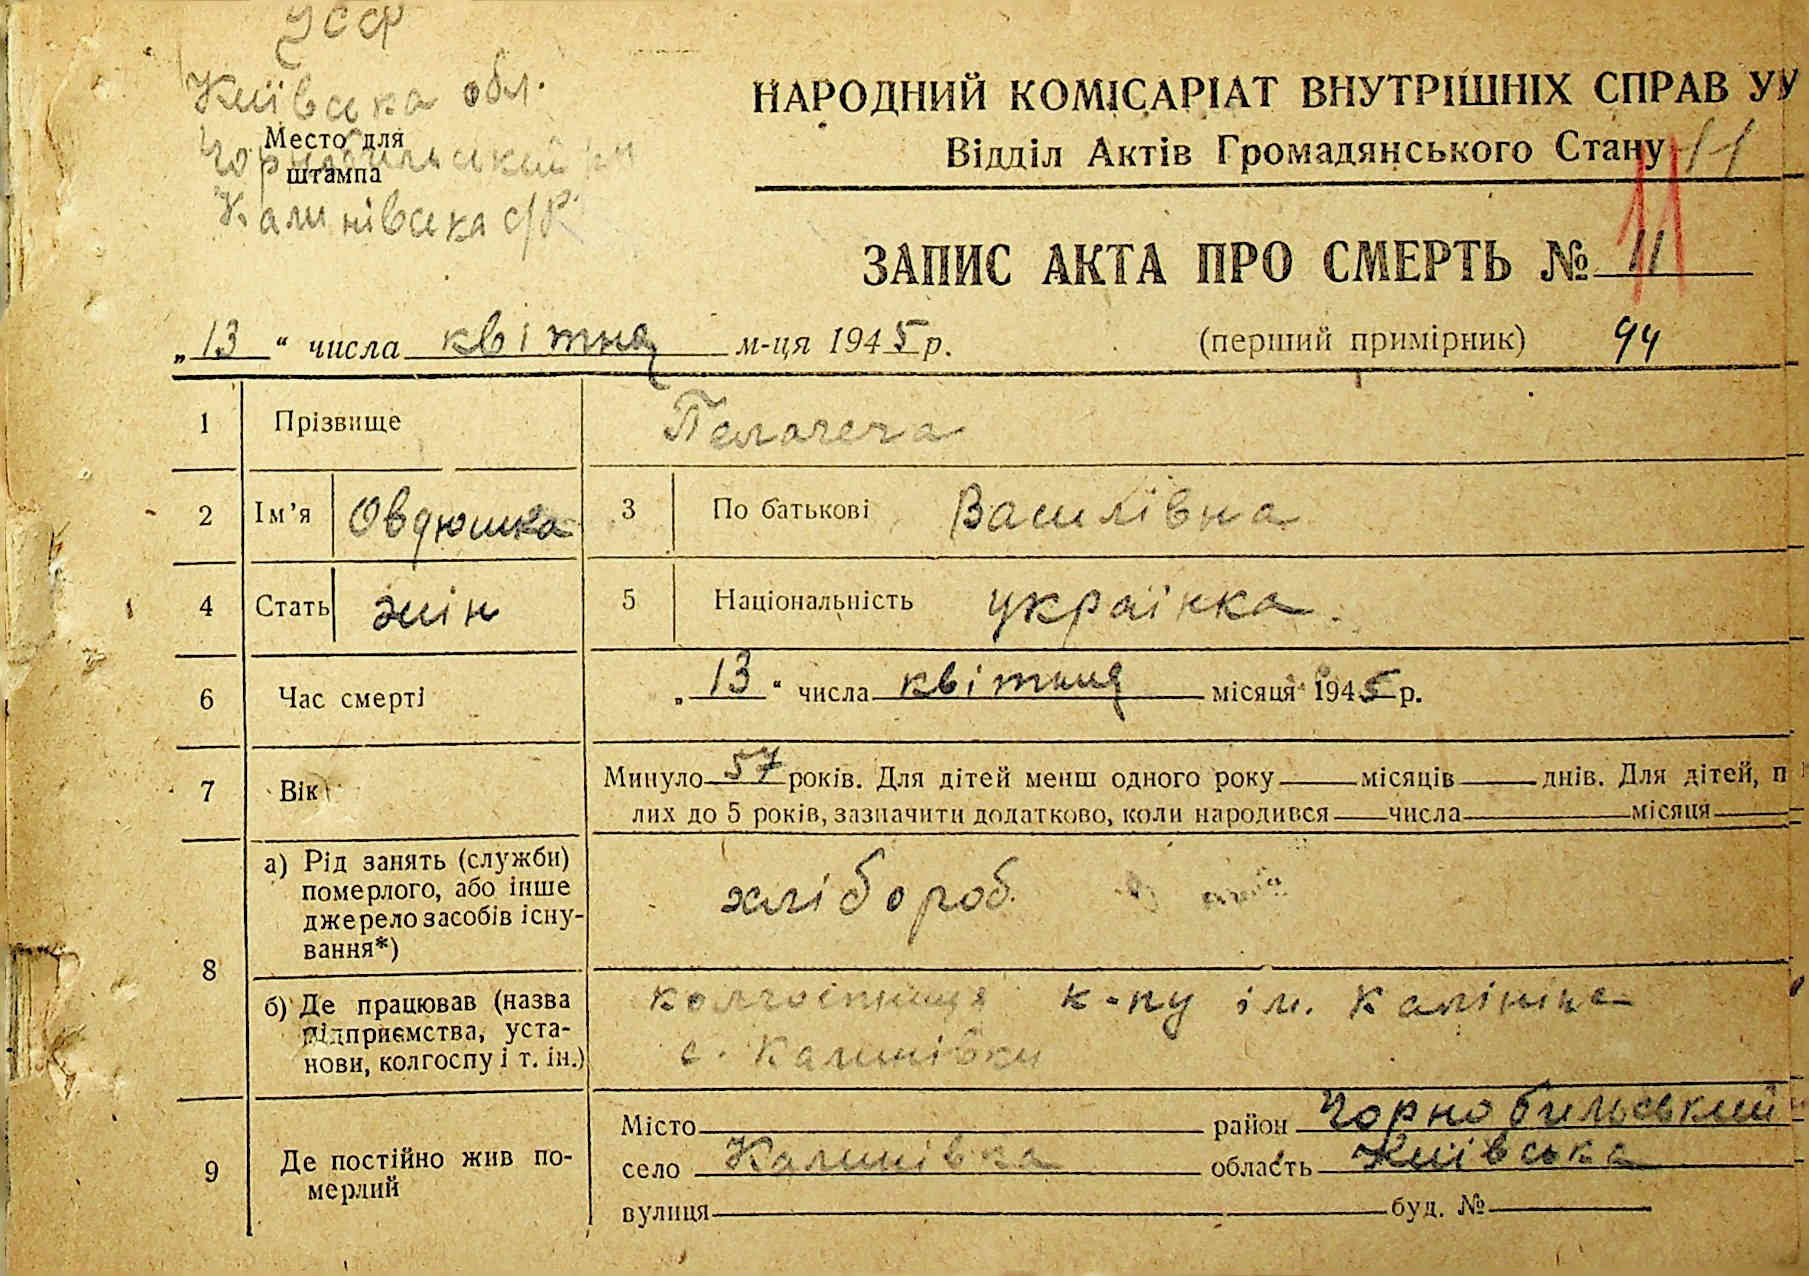 УССР
Київська обл.
Место для
Чорнобильський рн
штампа
Калинівська с/Р
НАРОДНИЙ КОМІСАРІАТ ВНУТРІШНІХ СПРАВ УУ
Відділ Актів Громадянського Стану 11
11
ЗАПИС АКТА ПРО СМЕРТЬ № 11
„13“ числа квітня м-ця 1945 р. (перший примірник) 94
1 Прізвище
2 Ім’я Овдюшка 3 По батькові Василівна
4 Стать жін 5 Національність українка.
6 Час смерті „13“ числа квітня місяця 1945 р.
7 Вік Минуло 57 років. Для дітей менш одного року місяців днів. Для дітей, п
лих до 5 років, зазначити додатково, коли народився числа місяця
8 а) Рід занять (служби)
померлого, або інше
джерело засобів існу-
вання*)
хлібороб.
б) Де працював (назва
підприємства, уста-
нови, колгоспу і т. ін.)
колгоспниця к-пу ім. Калініна
с. Калинівки
9 Де постійно жив по-
мерлий
Місто район Чорнобильський
село Калинівка область Київська
вулиця буд. №